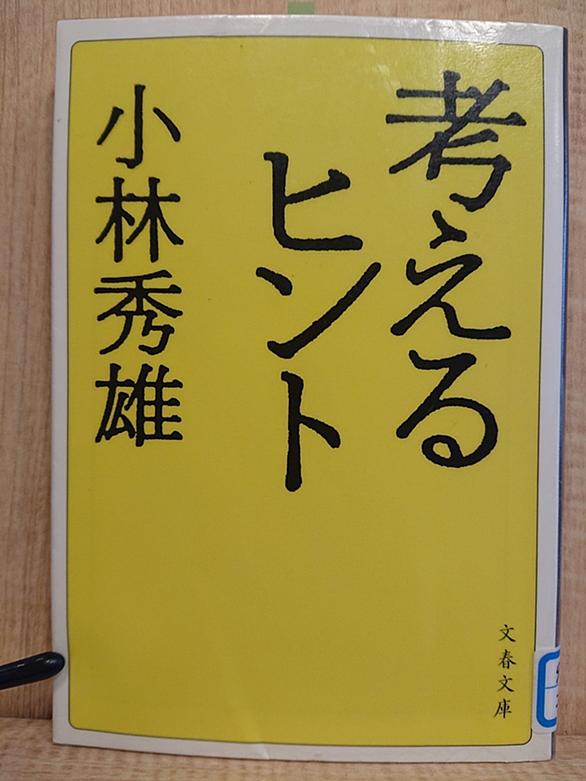 考える
ヒント
小林秀雄
文春文庫